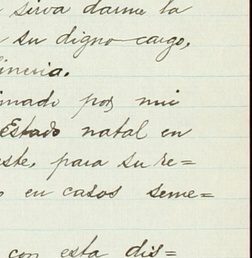 sirva darme la
su digno cargo,
imado por mi
Estado natal en
este, para su re=
en casos seme=
con esta dis=